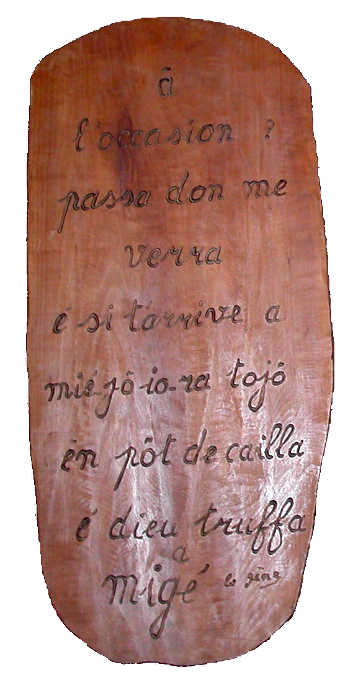 ã
l'occasion ?
passa don me
verra
é si t'arrive a
mié-jô-io-ra tojô
én pôt de cailla
é dieu truffa
a
migé